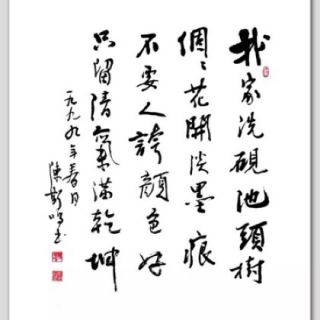 我家洗硯池頭樹
個〻花開淡墨痕
不要人誇顏色好
只留清氣滿乾坤
一九九九年春日
陳書